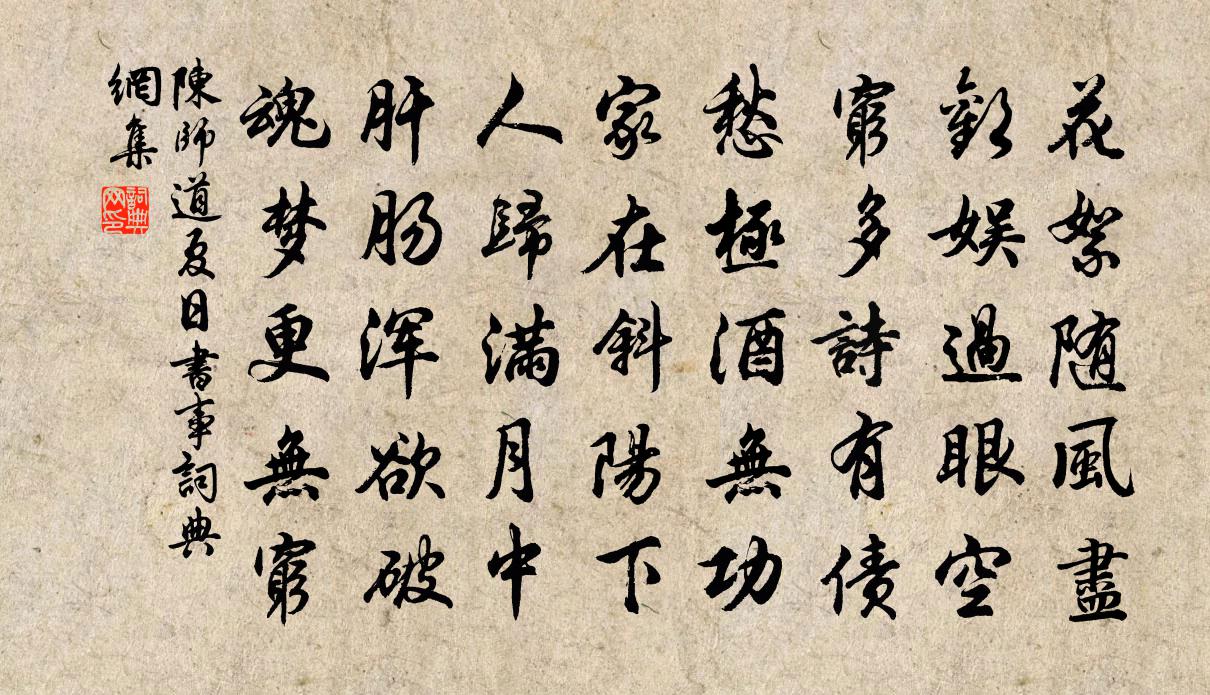 花絮随風盡
歡娱過眼空
窮多詩有债
愁極酒無功
家在斜陽下
人歸满月中
肝肠浑欲破
魂梦更無窮
陳師道夏日書事詞典
網集
詞典网印